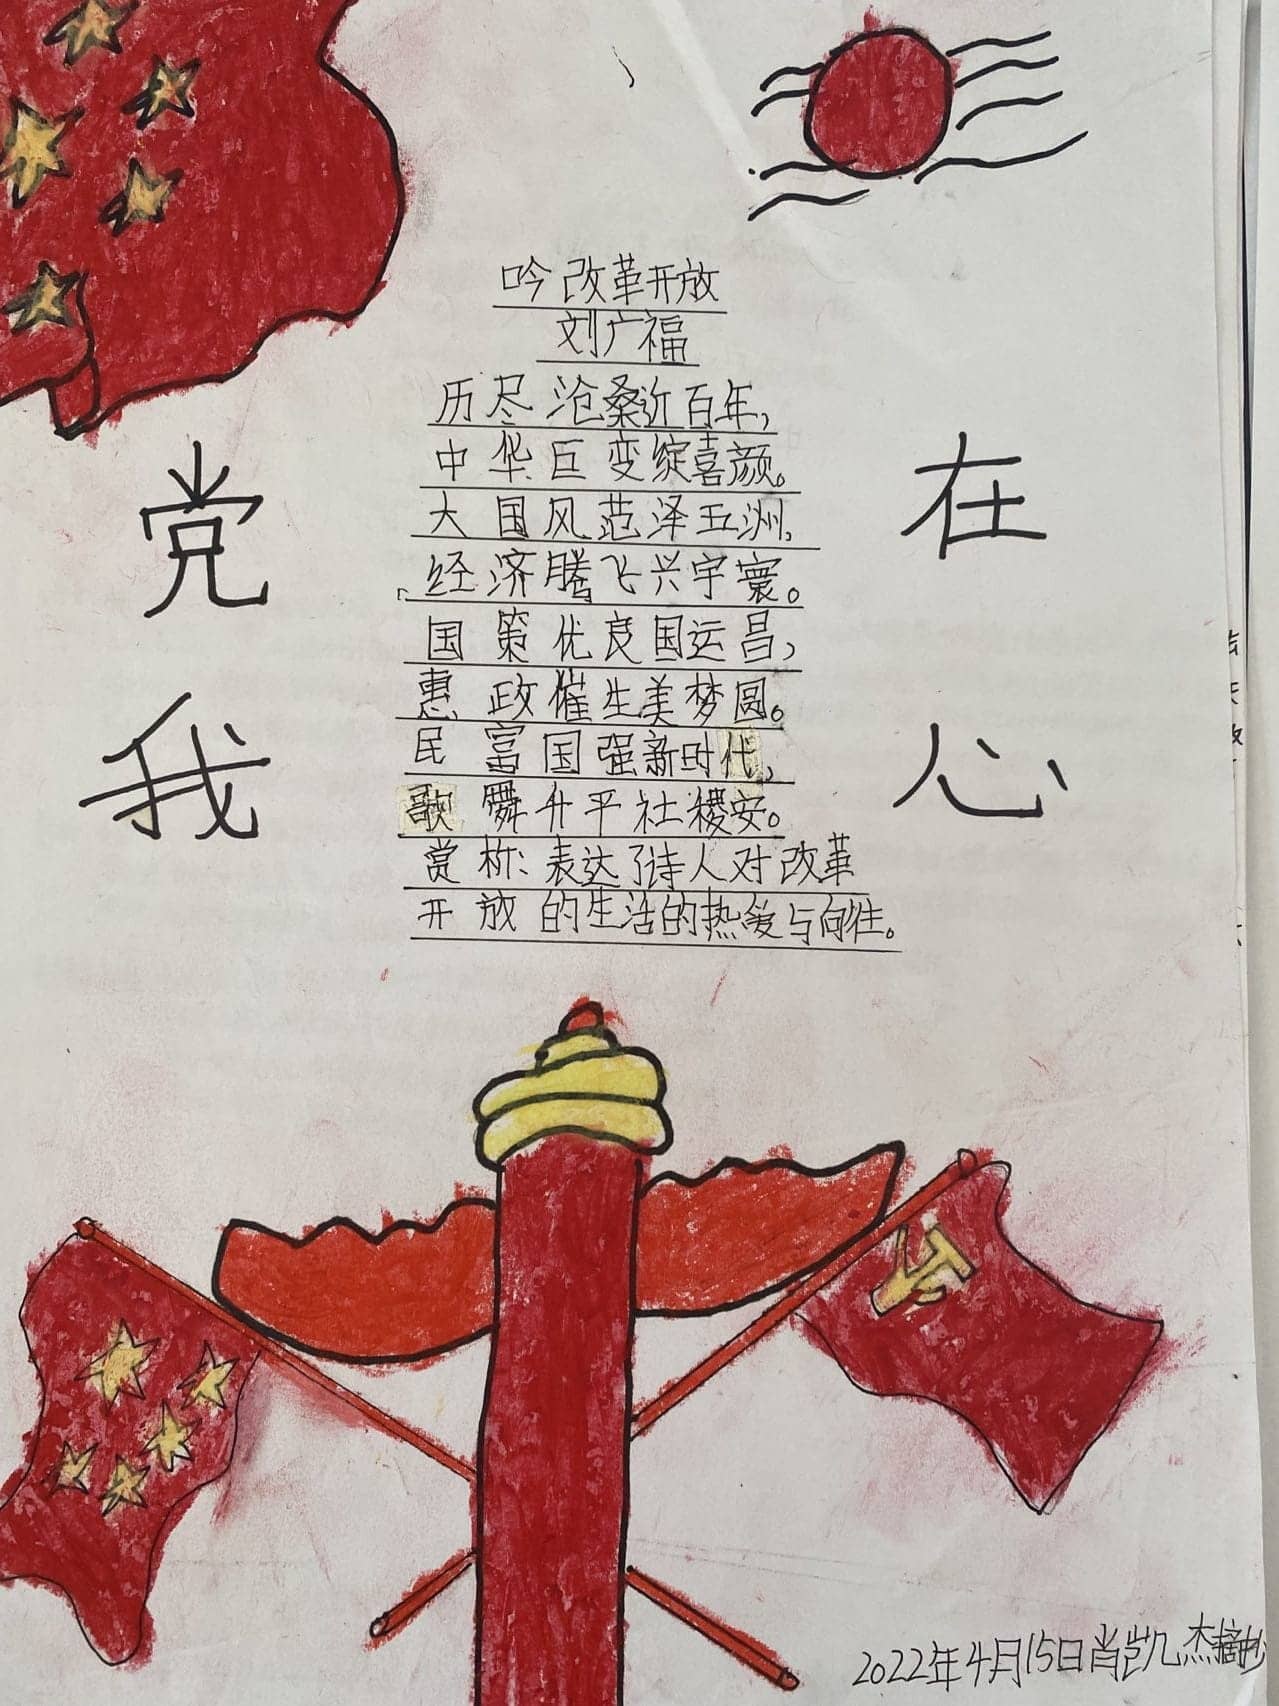 吟改革开放
刘广福
历尽沧桑近百年,
中华巨变绽喜颜。
大国风范泽五洲,
经济腾飞兴宇寰。
国策优良国运昌,
惠政催生美梦圆。
民富国强新时代,
歌舞升平社稷安。
赏析:表达了诗人对改革
开放的生活的热爱与向往。
党 在
我 心
2022年4月15日肖凯杰摘抄